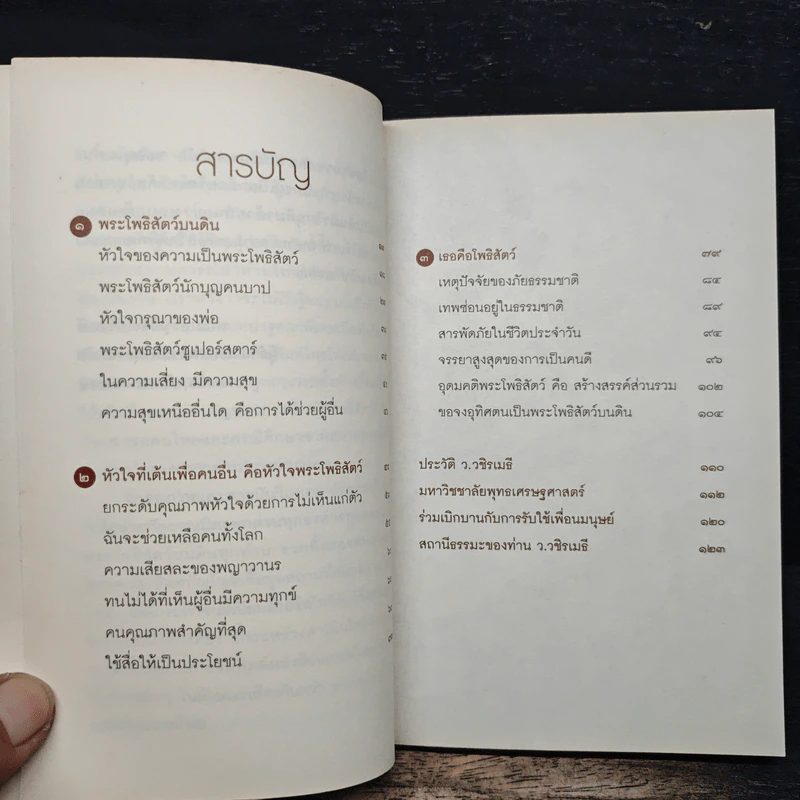 สารบัญ
๑ พระโพธิสัตว์บนดิน
หัวใจของความเป็นพระโพธิสัตว์
พระโพธิสัตว์นักบุญคนบาป
หัวใจกรุณาของพ่อ
พระโพธิสัตว์ซูเปอร์สตาร์
ในความเสี่ยง มีความสุข
ความสุขเหนืออื่นใด คือการได้ช่วยผู้อื่น
๒ หัวใจที่เต้นเพื่อคนอื่น คือหัวใจพระโพธิสัตว์
ยกระดับคุณภาพหัวใจด้วยการไม่เห็นแก่ตัว
ฉันจะช่วยเหลือคนทั้งโลก
ความเสียสละของพญาวานร
ทนไม่ได้ที่เห็นผู้อื่นมีความทุกข์
คนคุณภาพสำคัญที่สุด
ใช้สื่อให้เป็นประโยชน์
๓ เธอคือโพธิสัตว์ ๗๙
เหตุปัจจัยของภัยธรรมชาติ ๘๕
เทพซ่อนอยู่ในธรรมชาติ ๘๙
สารพัดภัยในชีวิตประจำวัน ๙๔
จรรยาสูงสุดของการเป็นคนดี ๙๖
อุดมคติพระโพธิสัตว์ คือ สร้างสรรค์ส่วนรวม ๑๐๒
ขอจงอุทิศตนเป็นพระโพธิสัตว์บนดิน ๑๐๔
ประวัติ ว.วชิรเมธี ๑๑๐
มหาวิชชาลัยพุทธเศรษฐศาสตร์ ๑๑๒
ร่วมเบิกบานกับการรับใช้เพื่อนมนุษย์ ๑๒๐
สถานีธรรมะของท่าน ว.วชิรเมธี ๑๒๓